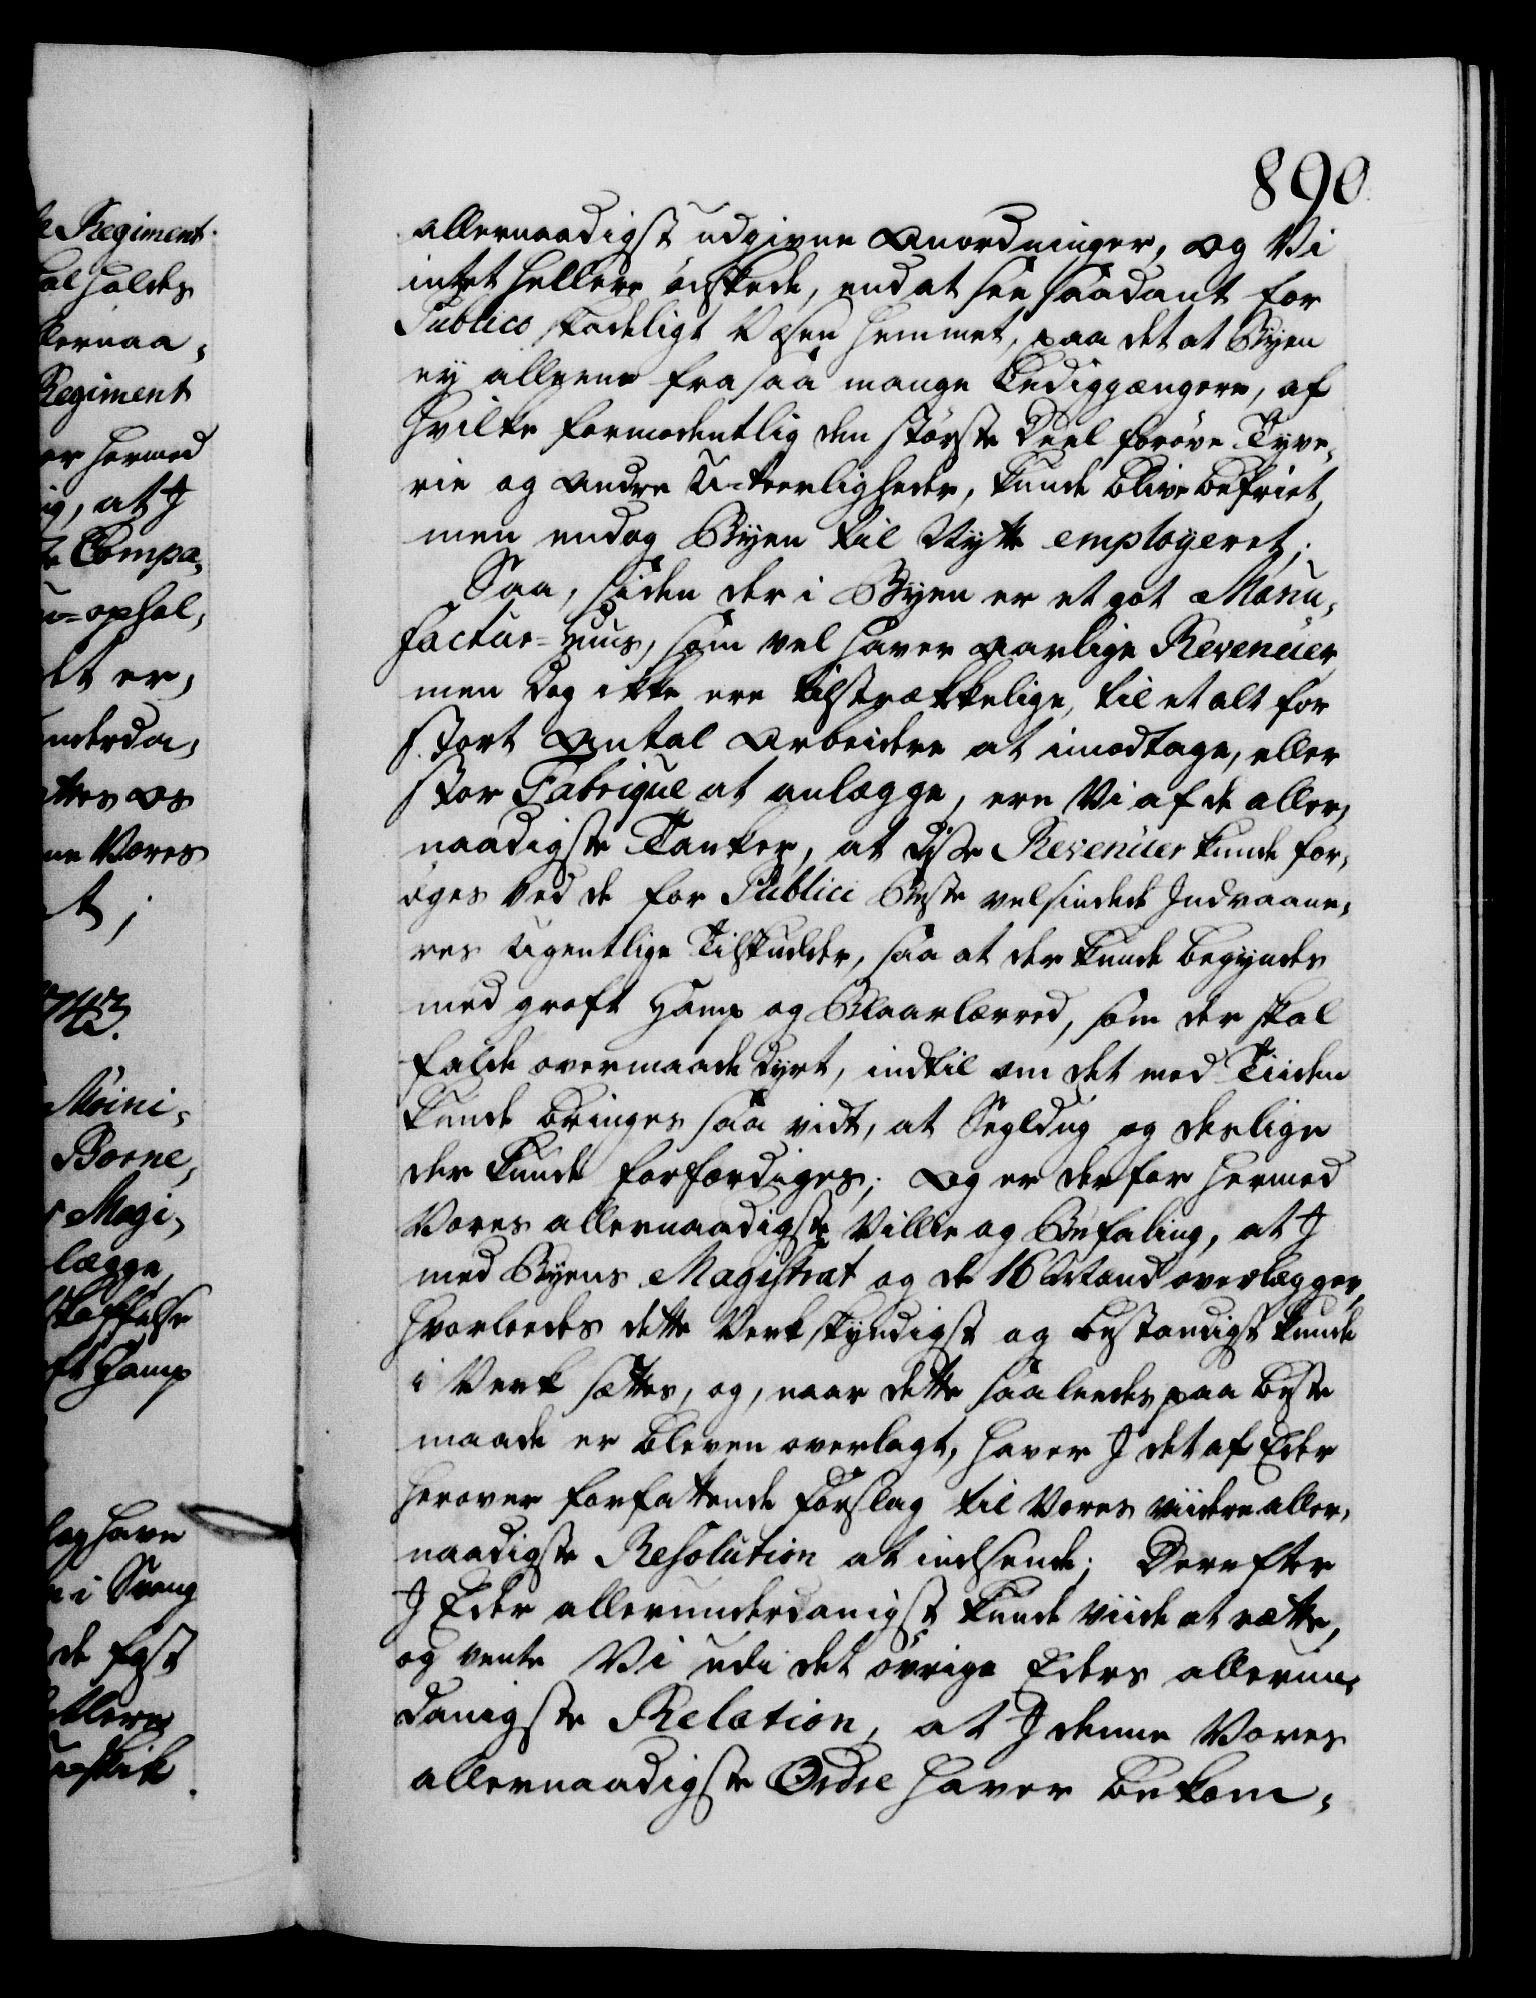 890
allernaadigst udgivne Anordninger, og Vi
intet hellere önskede, end at see saadant for
Publico skadeligt Væsen hemmet, paa det at Byen
ey alleene fra saa mange Lediggængere, af
hvilke formodentlig den störste Deel foröve Tyve,
rie og andre U-teerligheder, kunde blive befriet,
men endog Byen til Nytte employeret;
Saa, siden der i Byen er et got Manu,
factur-Huus, som vel haver aarlige Revenüer
men dog ikke ere tilstrækkelige, til et alt for
stort Antal Arbeidere at imodtage, eller
stor Fabrique at anlægge, ere Vi af de aller,
naadigste Tanker, at disse Revenüer kunde for,
öges ved de for Publici Beste velsindede Indvaane,
res Ugentlige Tilskudder, saa at der kunde begyndes
med groft Hamp og Blaarlærred, som der skal
falde overmaade dyrt, indtil om det med Tiiden
kunde bringes saa vidt, at Segldug og deslige
der kunde forfærdiges; Og er derfor hermed
Vores allernaadigste Villie og Befaling, at I
med Byens Magistrat og de 16 Mænd overlægger,
hvorleedes dette Verk skyndigst og bestandigst kunde
i Verk sættes, og, naar dette saaleedes paa beste
maade er bleven overlagt, haver I det af Eder
herover forfattende Forslag til Vores viidere aller,
naadigste Resolution at indsende; Derefter
I Eder allerunderdanigst kunde viide at rette,
og vente Vi udi det övrige Eders allerun,
danigste Relation, at I denne Vores
allernaadigste Ordre haver bekom,